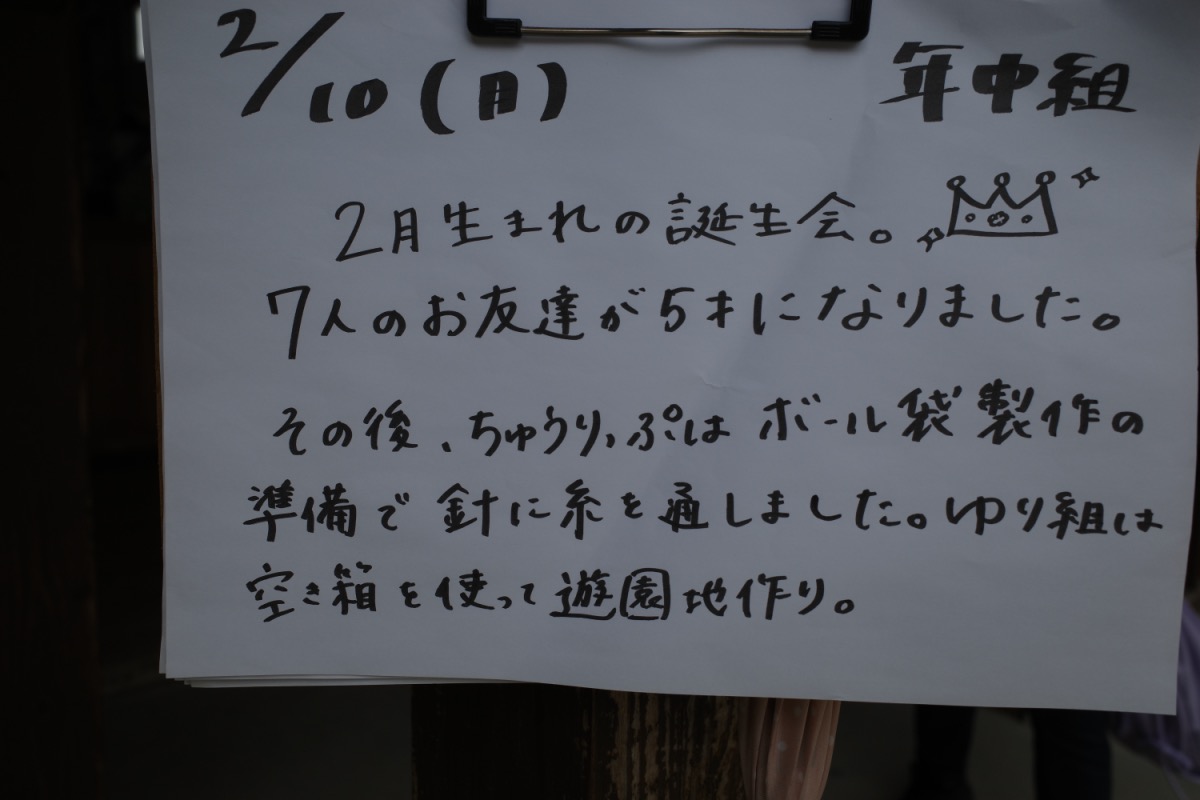 2/10(月) 年中組
2月生まれの誕生会。
7人のお友達が5才になりました。
その後、ちゅうりっぷはボール袋製作の
準備で針に糸を通しました。ゆり組は
空き箱を使って遊園地作り。